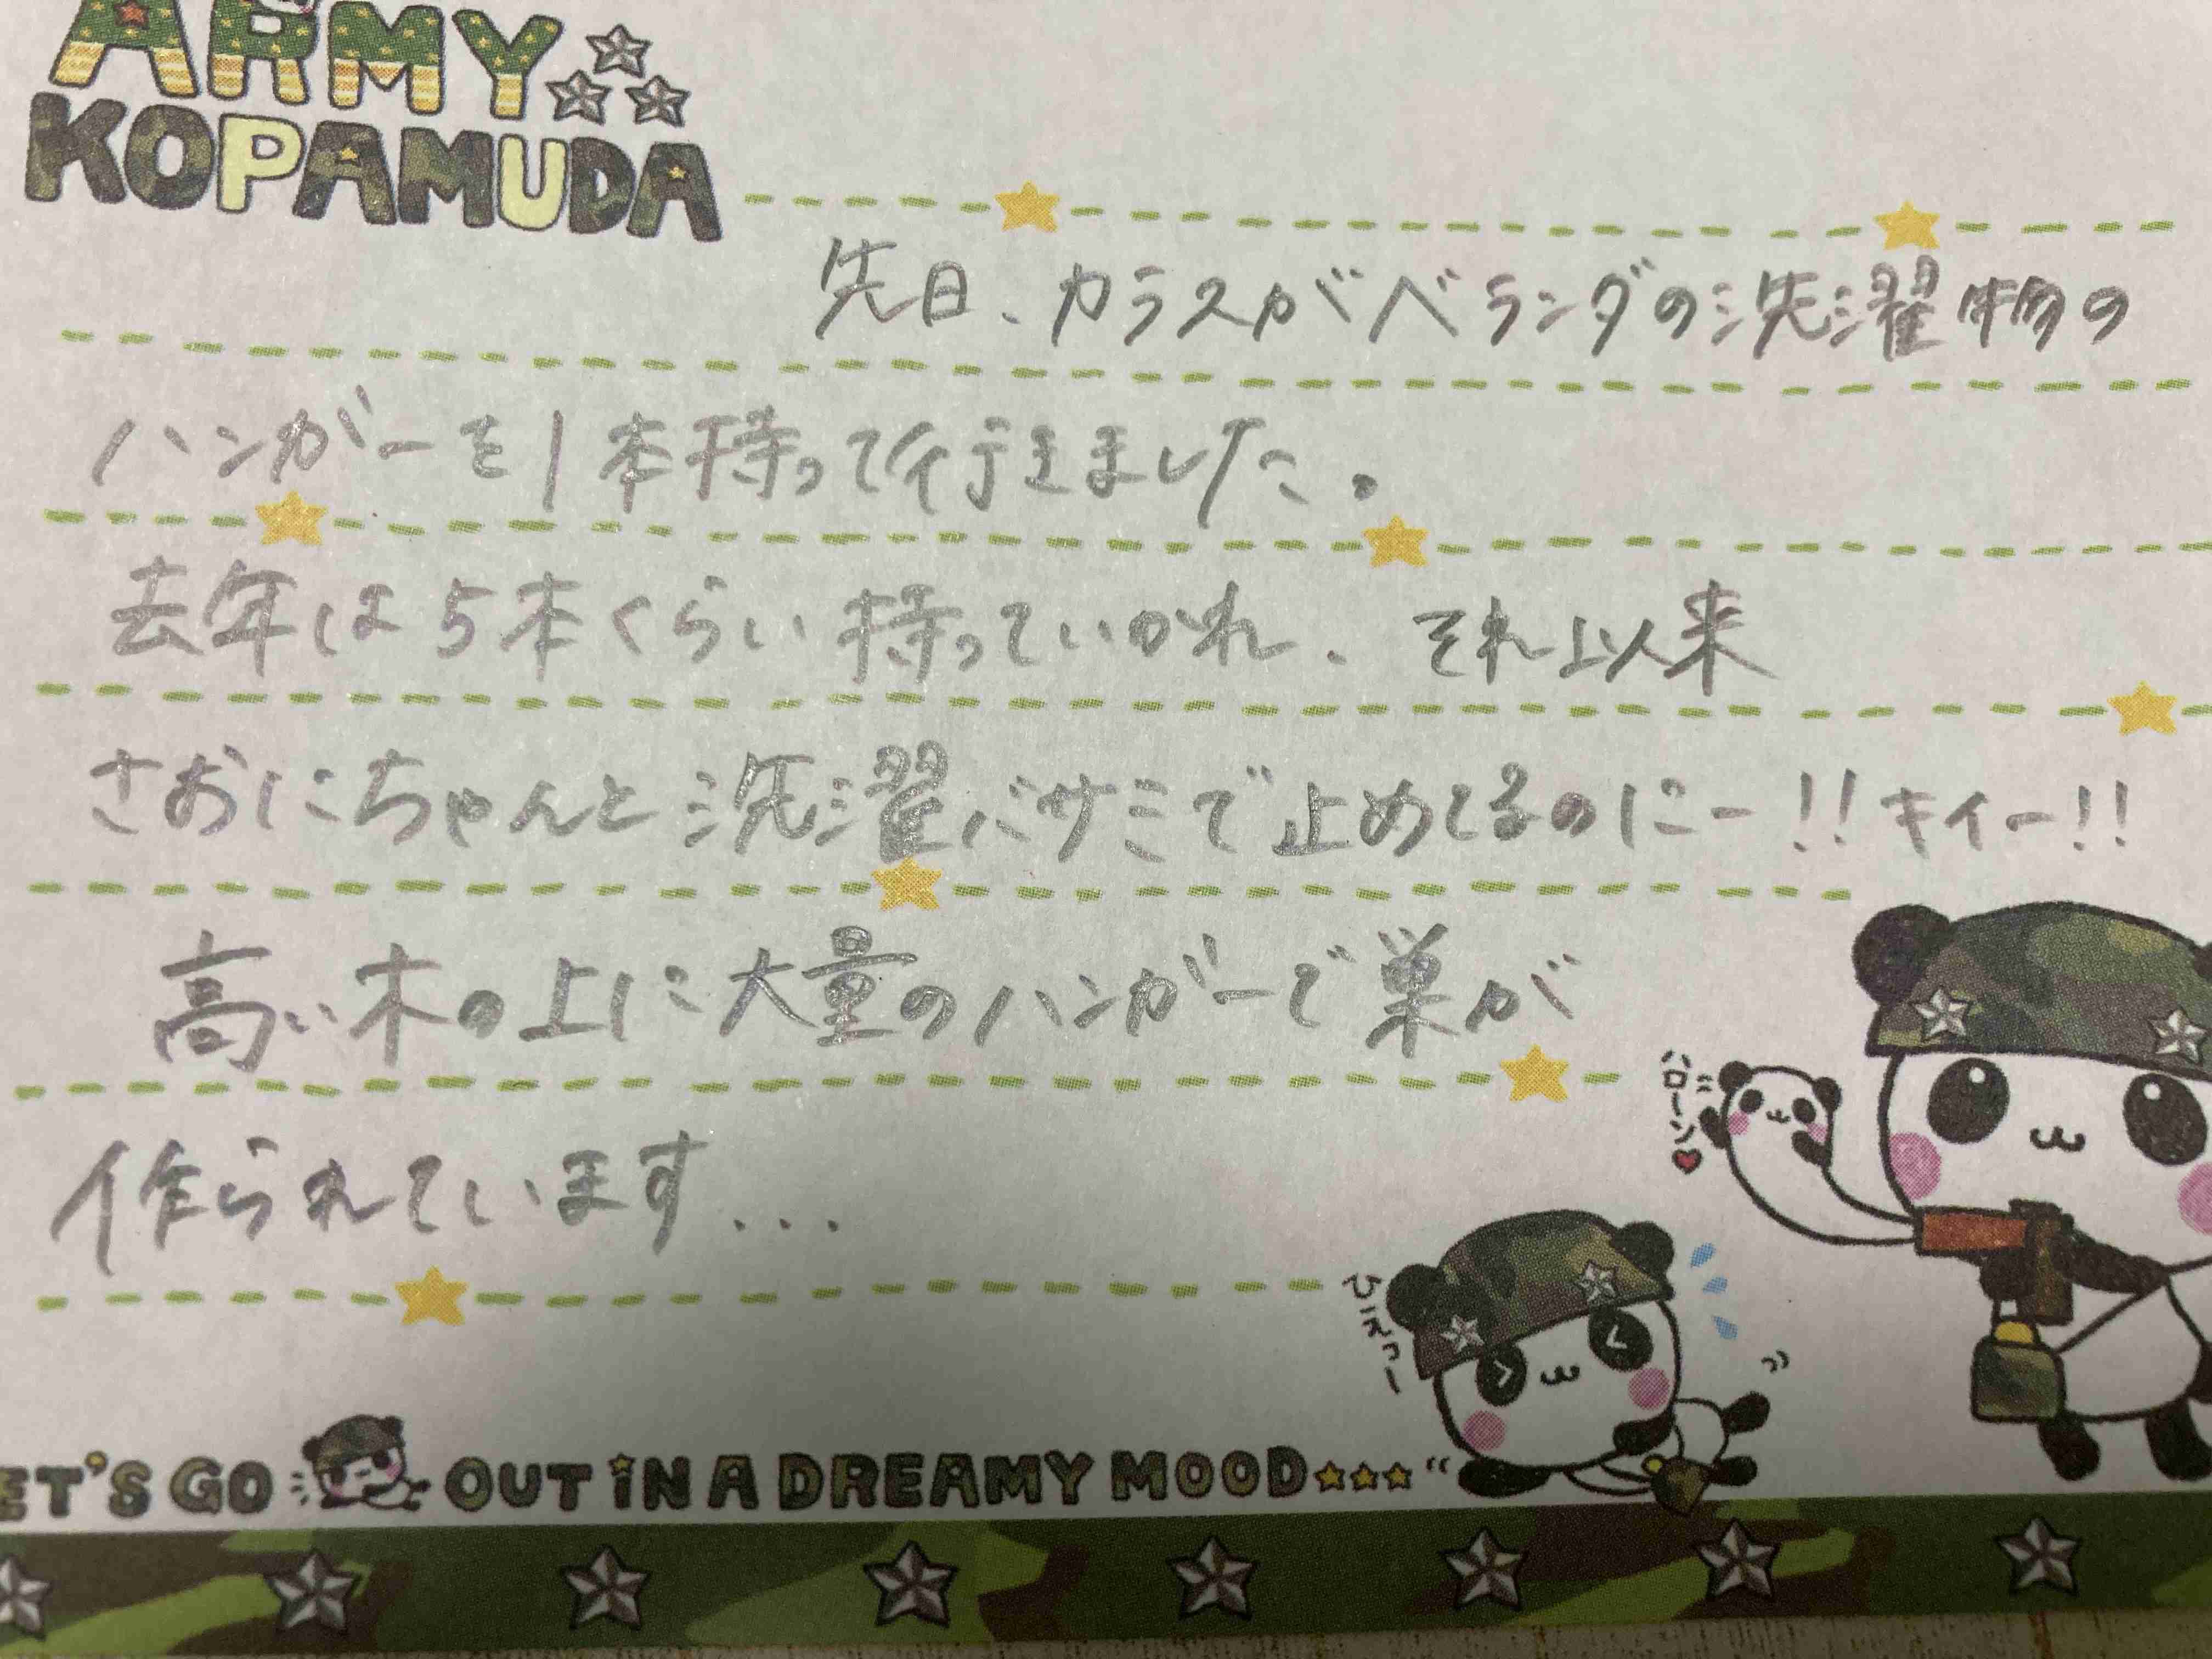 ARMY
KOPAMUDA
先日、カラスがベランダの洗濯物の
ハンガーを1本持って行きました。
去年は5本くらい持っていかれ、それ以来
さおにちゃんと洗濯バサミで止めてるのにー!!キィー!!
高い木の上に大量のハンガーで巣が
作られています...
ハローン
ひーえっー
ET'S GO OUT IN A DREAMY MOOD